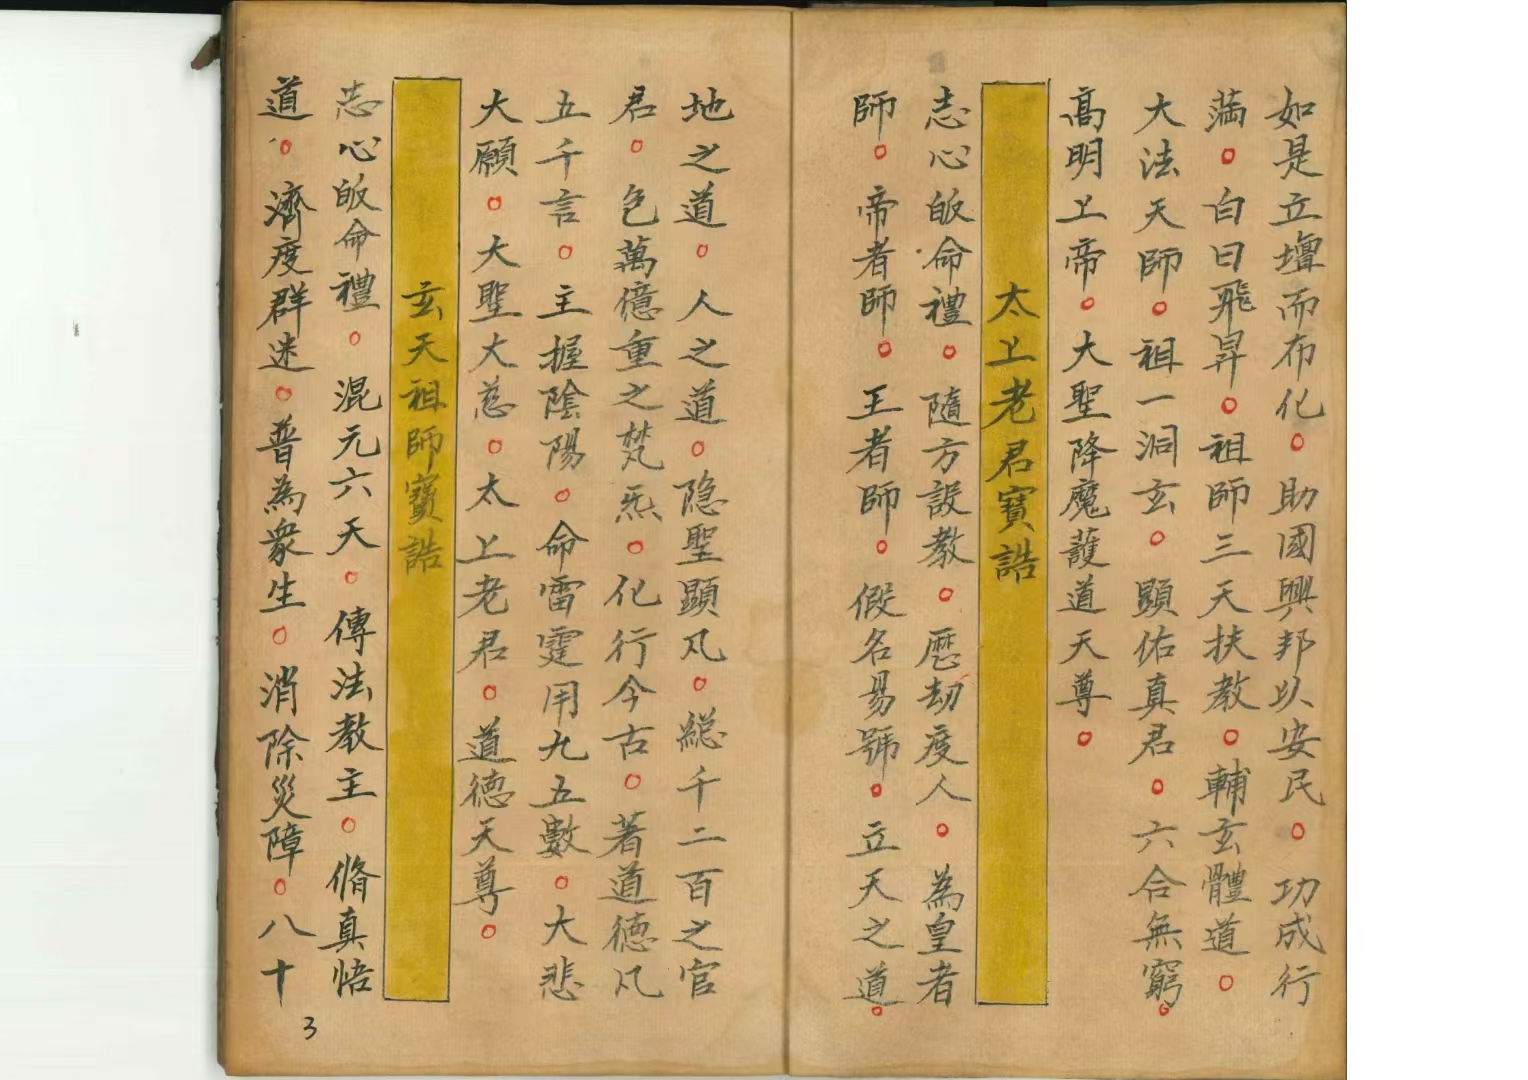 如是立壇而布化。助國興邦以安民。功成行
滿。白日飛昇。祖師三天扶教。輔玄體道。
大法天師。祖一洞玄。顯佑真君。六合無窮。
高明上帝。大聖降魔護道天尊。
太上老君寶誥
志心皈命禮。隨方設教。歷劫度人。為皇者
師。帝者師。王者師。假名易號。立天之道。
地之道。人之道。隐聖顯凡。総千二百之官
君。色萬億重之梵炁。化行今古。著道德凡
五千言。主握陰陽。命雷霆用九五數。大悲
大願。大聖大慈。太上老君。道德天尊。
玄天祖師寶誥
志心皈命禮。混元六天。傳法教主。脩真悟
道。濟度群迷。普為衆生。消除災障。八十
3